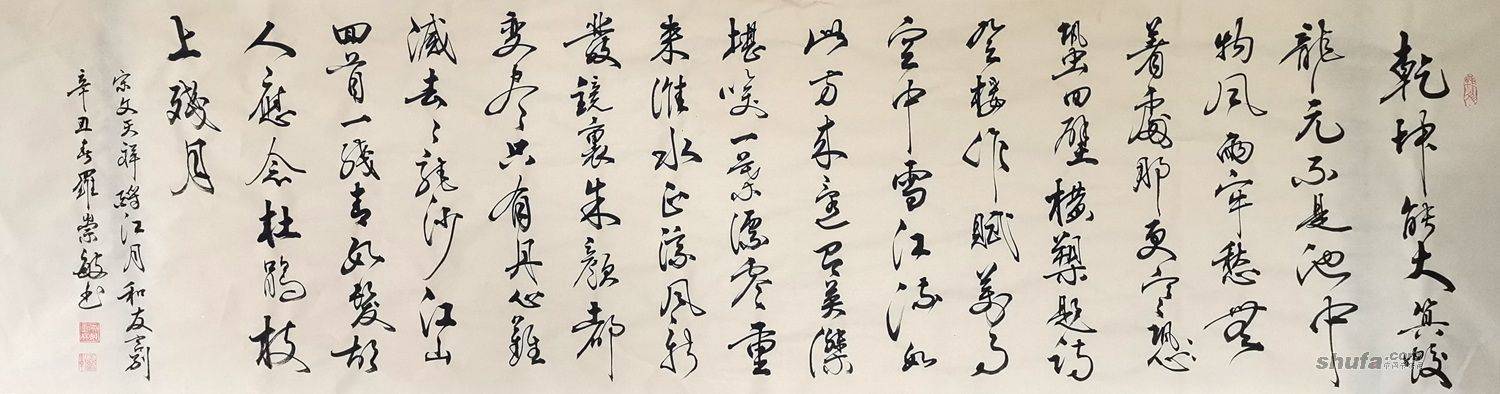 乾坤能大算蛟
龍元不是池中
物風雨牢愁無
着處那更寒恐
蛩四壁橫槊題詩
登樓作賦萬事
空中雪江流如
此方来還有英傑
堪笑一葉漂零重
来淮水正涼風新
發鏡裏朱顏都
變盡只有丹心難
滅去去龍沙江山
回首一綫青如髮故
人應念杜鵑枝
上殘月
宋文天祥酹江月和友言别
辛丑春羅崇敏书
shufa.com